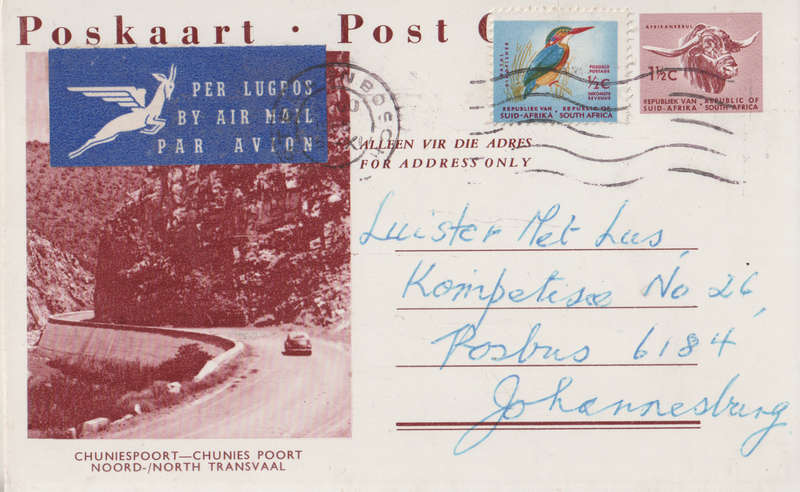 Poskaart · Post C
PER LUGPOS
BY AIR MAIL
PAR AVION
NATAL KINGFISHER
POSSEËL POSTAGE
½C
INKOMSTE REVENUE
REPUBLIEK VAN SUID-AFRIKA · REPUBLIC OF SOUTH AFRICA
AFRIKANERBUL
1½C
REPUBLIEK VAN SUID-AFRIKA · REPUBLIC OF SOUTH AFRICA
ALLEEN VIR DIE ADRES
FOR ADDRESS ONLY
Luister Met Lus,
Kompetisie No 26,
Posbus 6184
Johannesburg
CHUNIESPOORT—CHUNIES POORT
NOORD-/NORTH TRANSVAAL